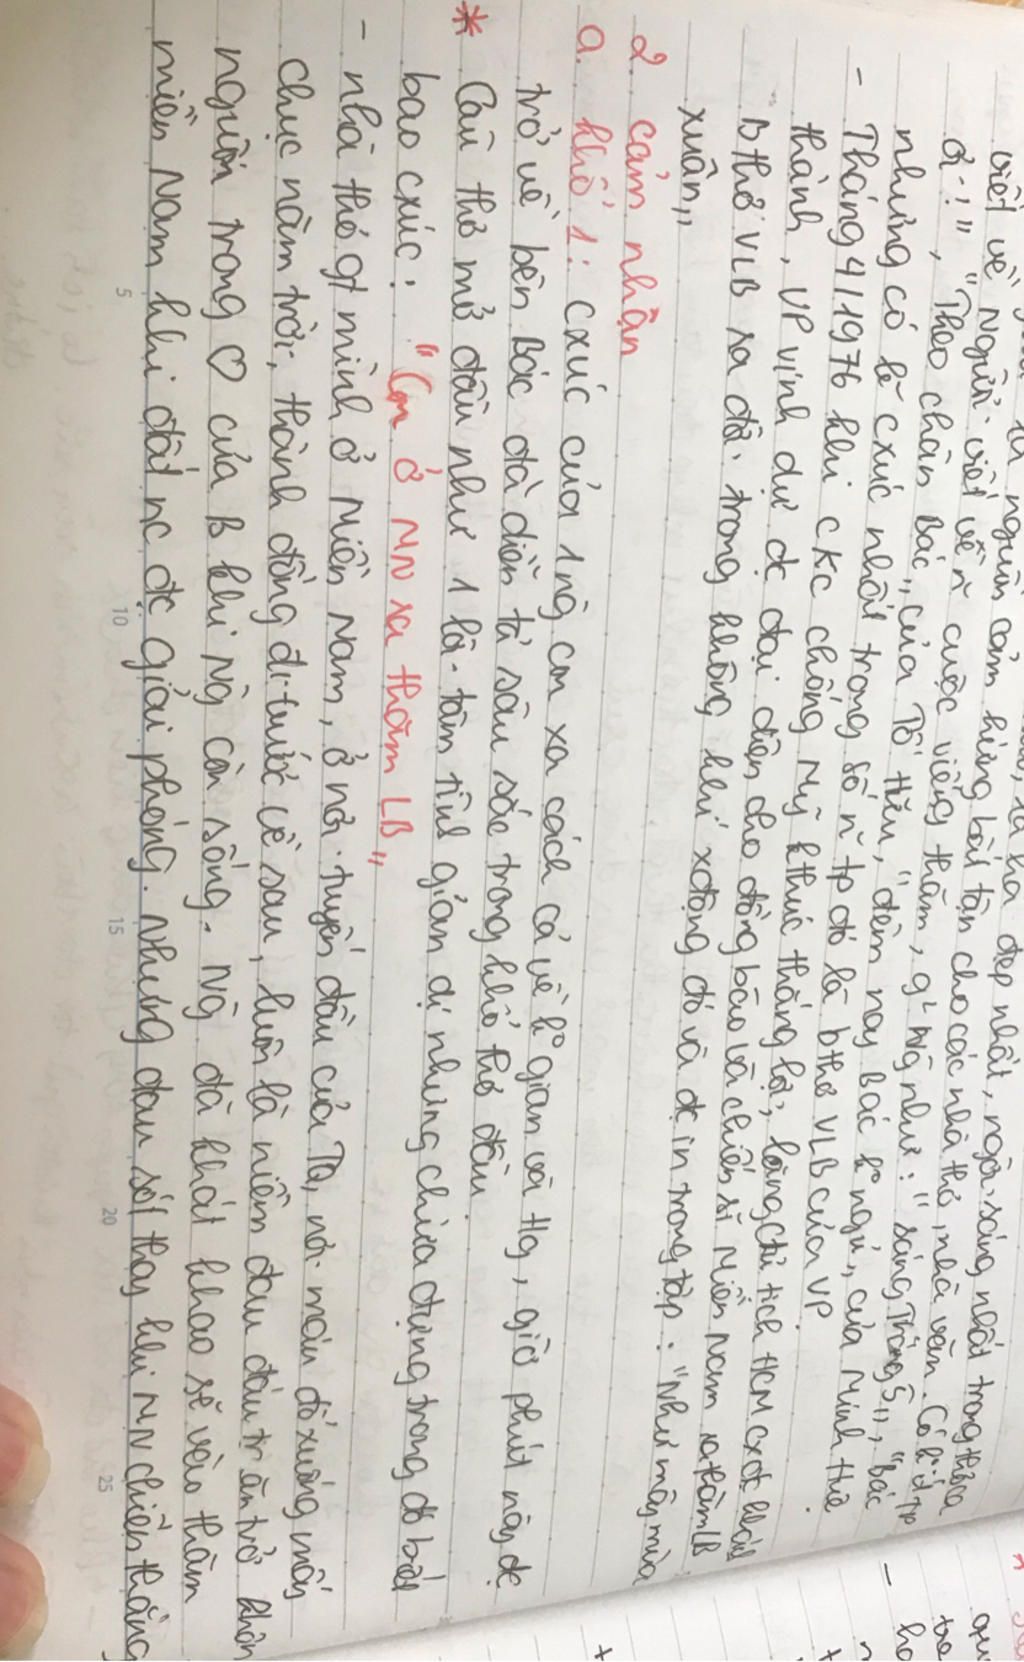 viết về Người. viết về ñ cuộc viếng thăm, gặp Ng như: "sáng Tháng 5", "Bác
ơi!", "Theo chân Bác" của Tố Hữu, "đêm nay Bác ko ngủ" của Minh Huệ
nhưng có lẽ cxúc nhất trong số ñ tp đó là bthơ VLB của VP.
- Tháng 4/1976 khi cKc chống Mỹ kthúc thắng lợi, lăng chủ tịch HCM cxd khánh
thành, VP vinh dự đc đại diện cho đồng bào và chiến sĩ Miền Nam ra thăm LB
Bthơ VLB ra đời. trong không khí xđộng đó và đc in trong tập: "Như mây mùa
xuân"
2. cảm nhận
a. khổ 1: cxúc của 1 ng con xa cách cả về ko gian và tg, giờ phút này đc
trở về bên Bác đã diễn tả sâu sắc trong khổ thơ đầu.
* Câu thơ mở đầu như 1 lời. tâm tình giản dị nhưng chứa đựng trong đó bao
bao cxúc: "Con ở MN ra thăm LB"
- nhà thơ gt mình ở Miền Nam, ở nơi. tuyến đầu của TQ, nơi. máu đổ xương mấy
chục năm trời, thành đồng đi. trước về sau, luôn là niềm đau đáu trăn trở khôn
nguôi trong ♡ của B khi Ng còn sống. Ng đã khát khao sẽ vào thăm
miền Nam khi đất nc đc giải phóng. Nhưng đau sót thay khi MN chiến thắng
5
10
15
20
25